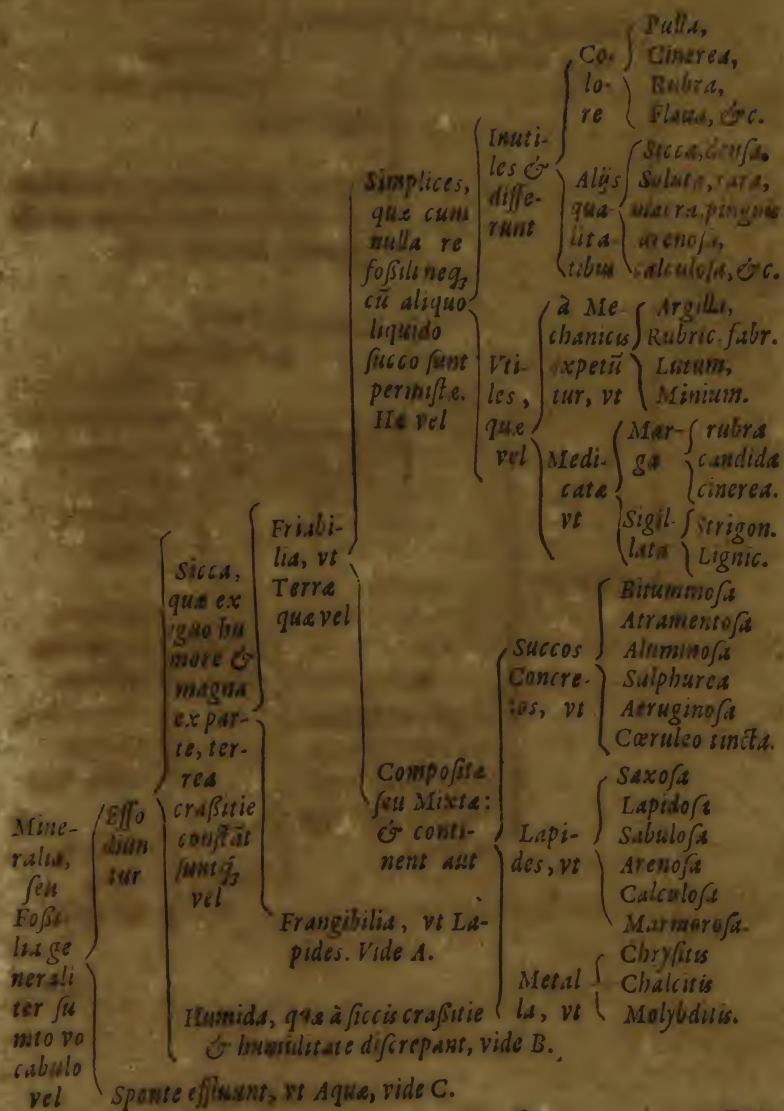 Mine-
ralia,
seu
Foßi-
lia ge
nerali
ter su
mto vo
cabulo
vel
Effo
diun
tur
Sicca,
quæ ex
iguo hu
more &
magna
ex par-
te, ter-
rea
craßitie
constāt
suntq́;
vel
Friabi-
lia, vt
Terræ
quæ vel
Simplices,
quæ cum
nulla re
foßili neq;
cū aliquo
liquido
succo sunt
permistæ.
Hæ vel
Inuti-
les &
diffe-
runt
Co-
lo-
re
Pulla,
Cinerea,
Rubra,
Flaua, &c.
Alijs
qua-
lita-
tibus
Sicca, densa,
Soluta, rara,
macra, pinguis
arenosa,
calculosa, &c.
Vti-
les,
quæ
vel
à Me-
chanicis
expetū
tur, vt
Argilla,
Rubric. fabr.
Lutum,
Minium.
Medi-
catæ
vt
Mar-
ga
rubra
candida
cinerea.
Sigil-
lata
Strigon.
Lignic.
Compositæ
seu Mixtæ:
& conti-
nent aut
Succos
Concre-
tos, vt
Bituminosa
Atramentosa
Aluminosa
Sulphurea
Aeruginosa
Cœruleo tincta.
Lapi-
des, vt
Saxosa
Lapidosa
Sabulosa
Arenosa
Calculosa
Marmorosa.
Metal
la, vt
Chrysitis
Chalcitis
Molybditis.
Frangibilia, vt La-
pides. Vide A.
Humida, quæ à siccis craßitie
& humiditate discrepant, vide B.
Sponte effluunt, vt Aquæ, vide C.